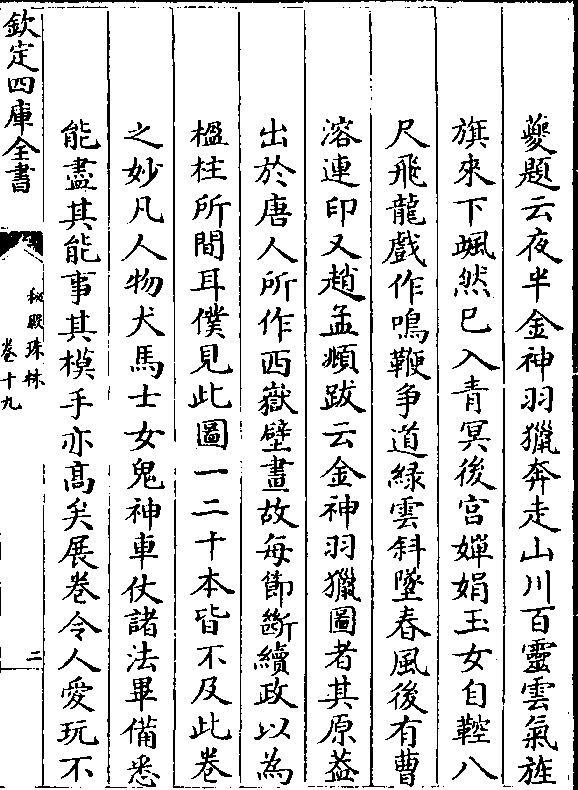 夔題云夜半金神羽獵奔走山川百靈雲氣旌
旗來下颯然已入青冥後宮嬋娟玉女自鞚八
尺飛龍戲作鳴鞭争道緑雲斜墜春風後有曹
溶連印又趙孟頫跋云金神羽獵圖者其原葢
出於唐人所作西嶽壁畫故每節斷續政以為
楹柱所間耳僕見此圖一二十本皆不及此卷
之妙凡人物犬馬士女鬼神車仗諸法畢備悉
能盡其能事其模手亦髙矣展卷令人愛玩不
欽定四庫全書
秘殿珠林
卷十九
二